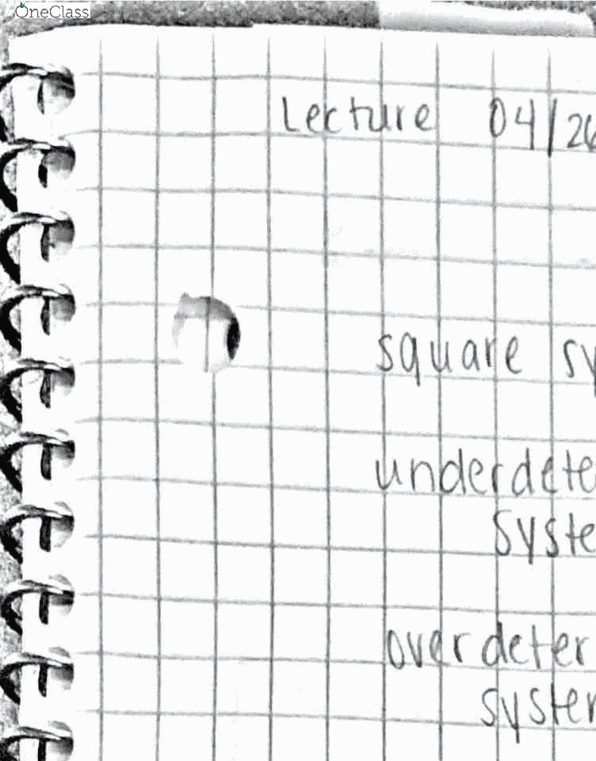 OneClass
Lecture 04/26
square sy
underdete
syste
overdeter
system